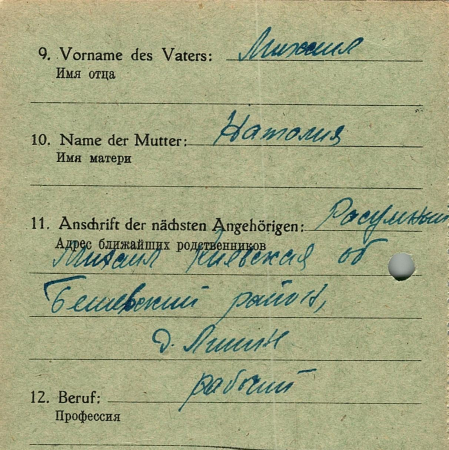 9. Vorname des Vaters: Михаил
Имя отца
10. Name der Mutter: Наталия
Имя матери
11. Anschrift der nächsten Angehörigen: Расумный
Адрес ближайших родственников
Михаил Киевская об
район,
д.
рабочий
12. Beruf:
Профессия